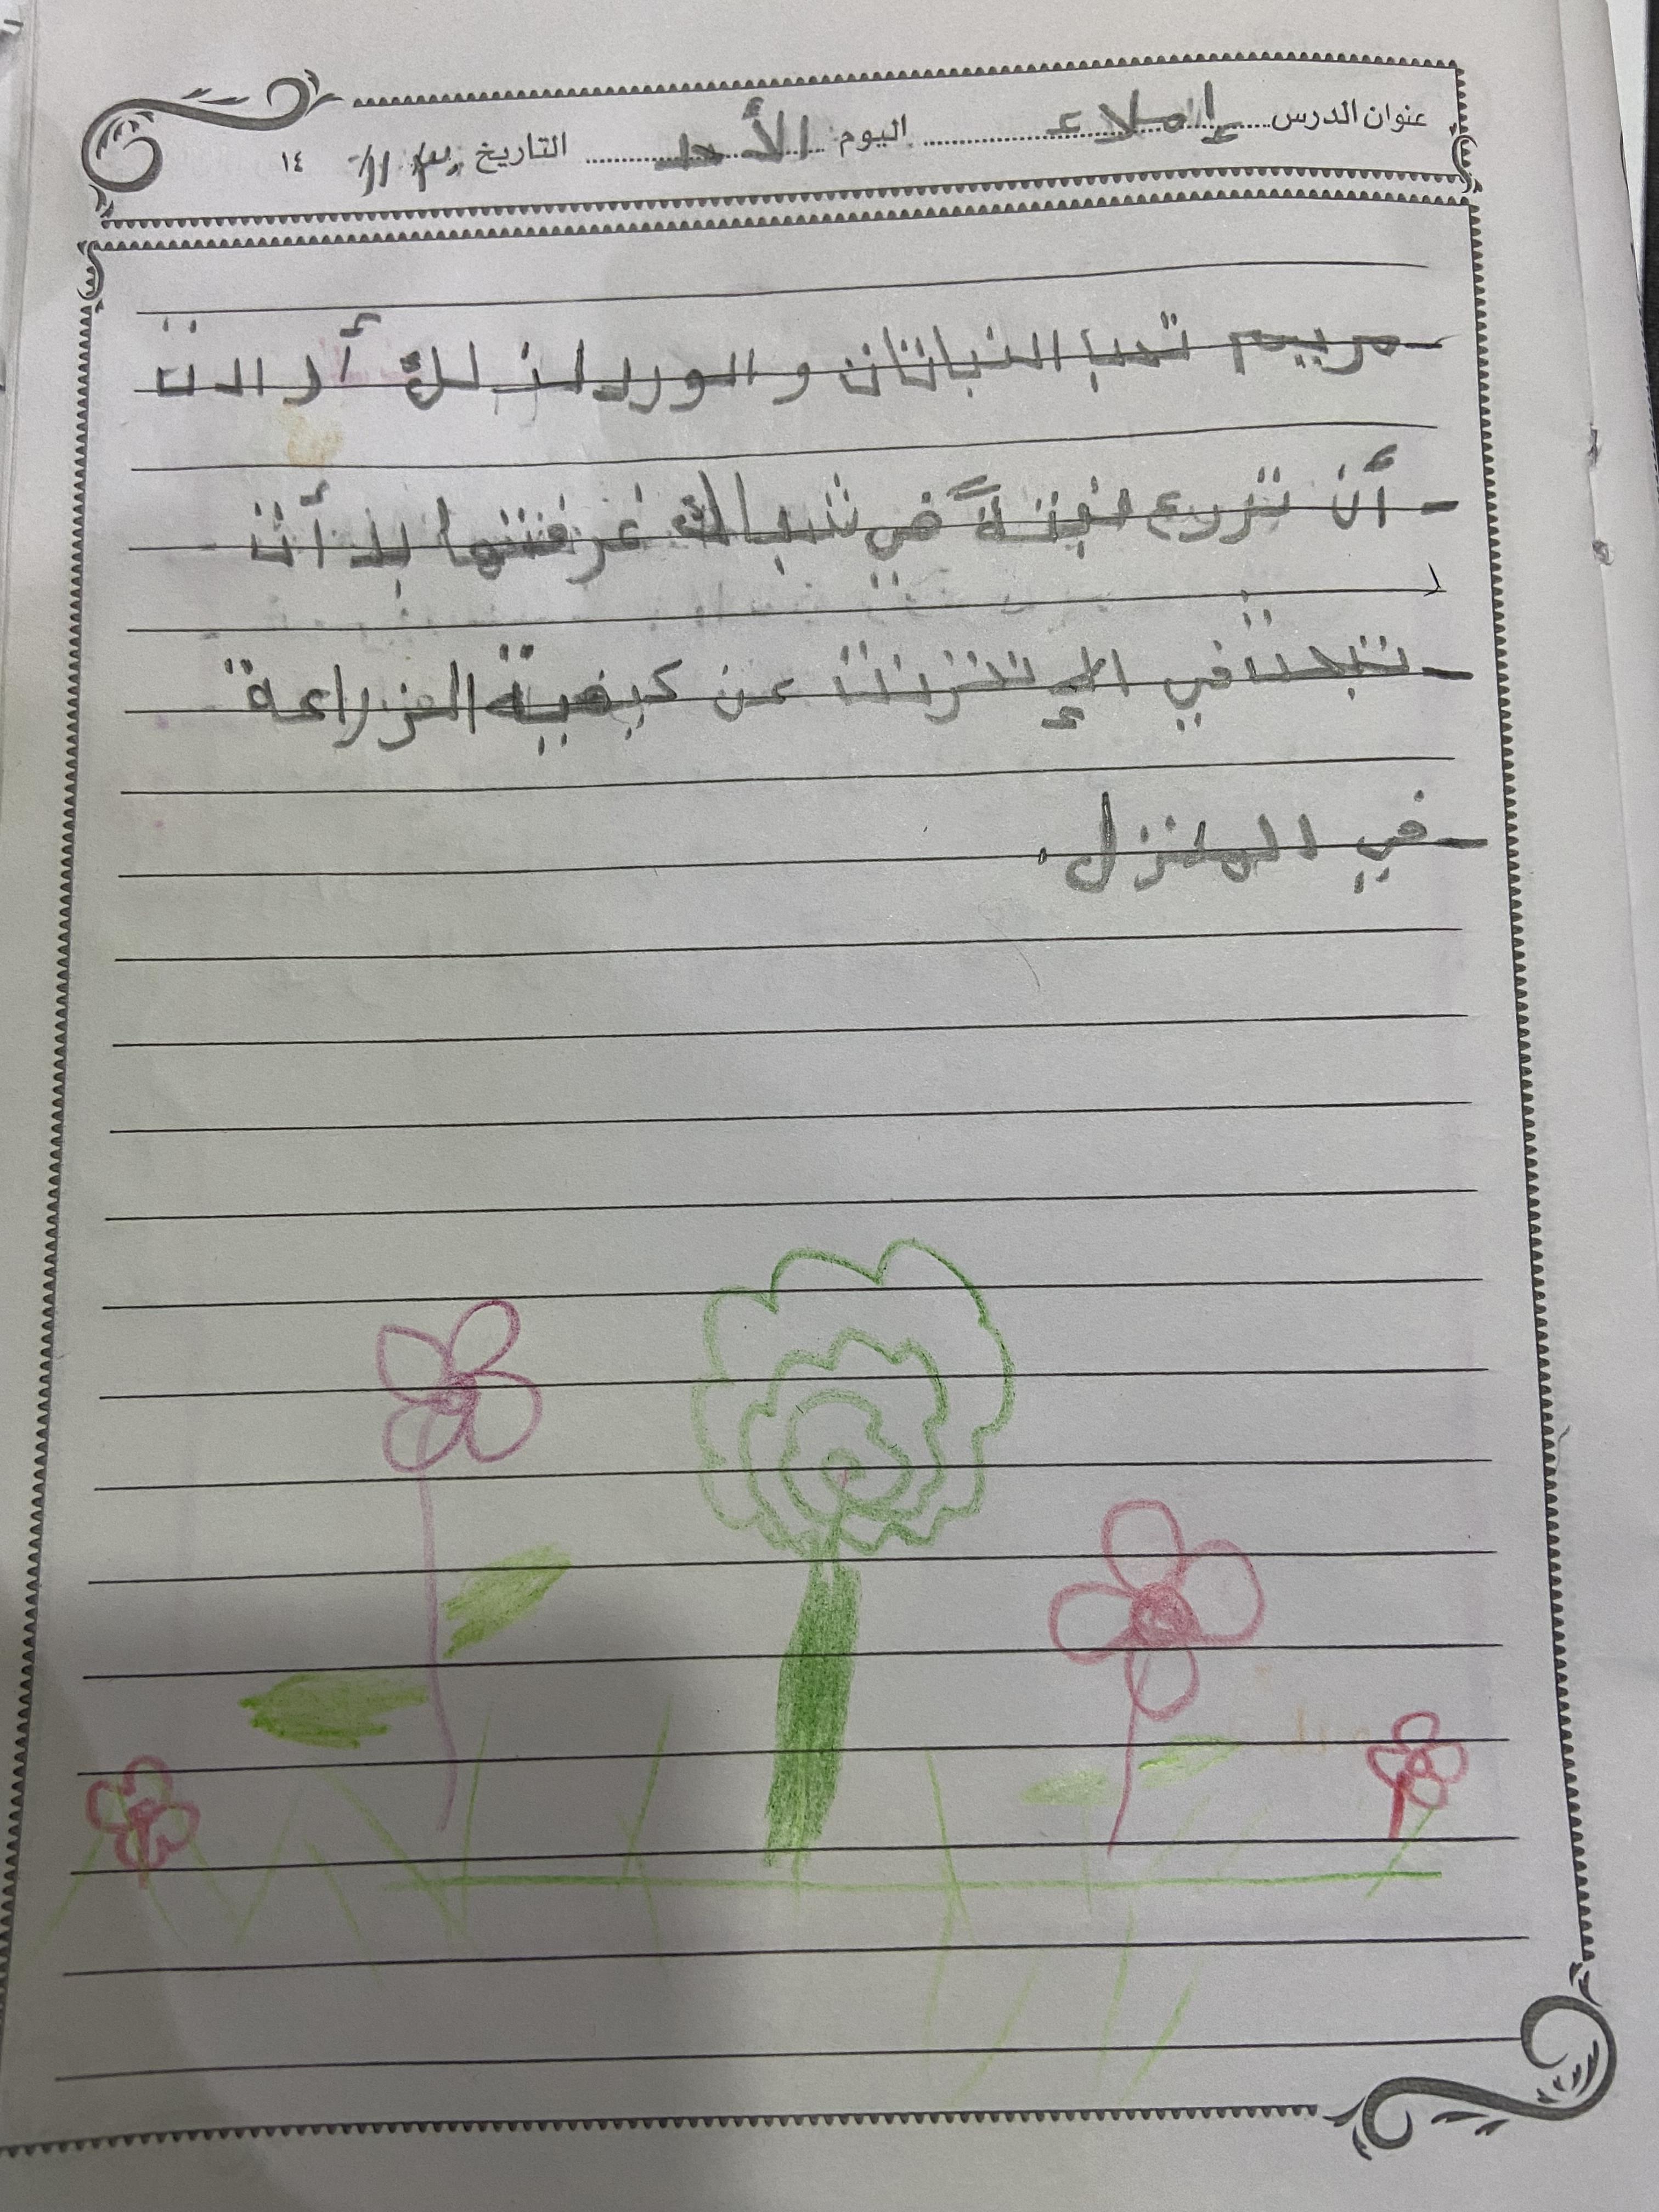 عنوان الدرس إملاء اليوم الأحد التاريخ ١٤
- مريم تحب النباتات والورد لذلك أرادت
- أن تزرع نبتةً في شباك غرفتها بدأت
- تبحث في الإنترنت عن كيفية الزراعة
- في المنزل.